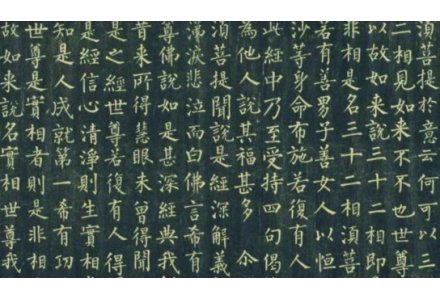 須菩提於意云何可以三
二相見如來不不也世尊
以故如來說三十二相即
非相是名三十二相須菩
若有善男子善女人以恒
沙等身命布施若復有人
此經中乃至受持四句偈
為他人說其福甚多 尒
須菩提聞說是經深解義
涕淚悲泣而白佛言希有
尊佛說如是甚深經典我
昔來所得慧眼未曾得聞
是之經世尊若復有人得
是經信心清淨則生實相
知是人成就第一希有功
世尊是實相者則是非相
故如來說名實相世尊我